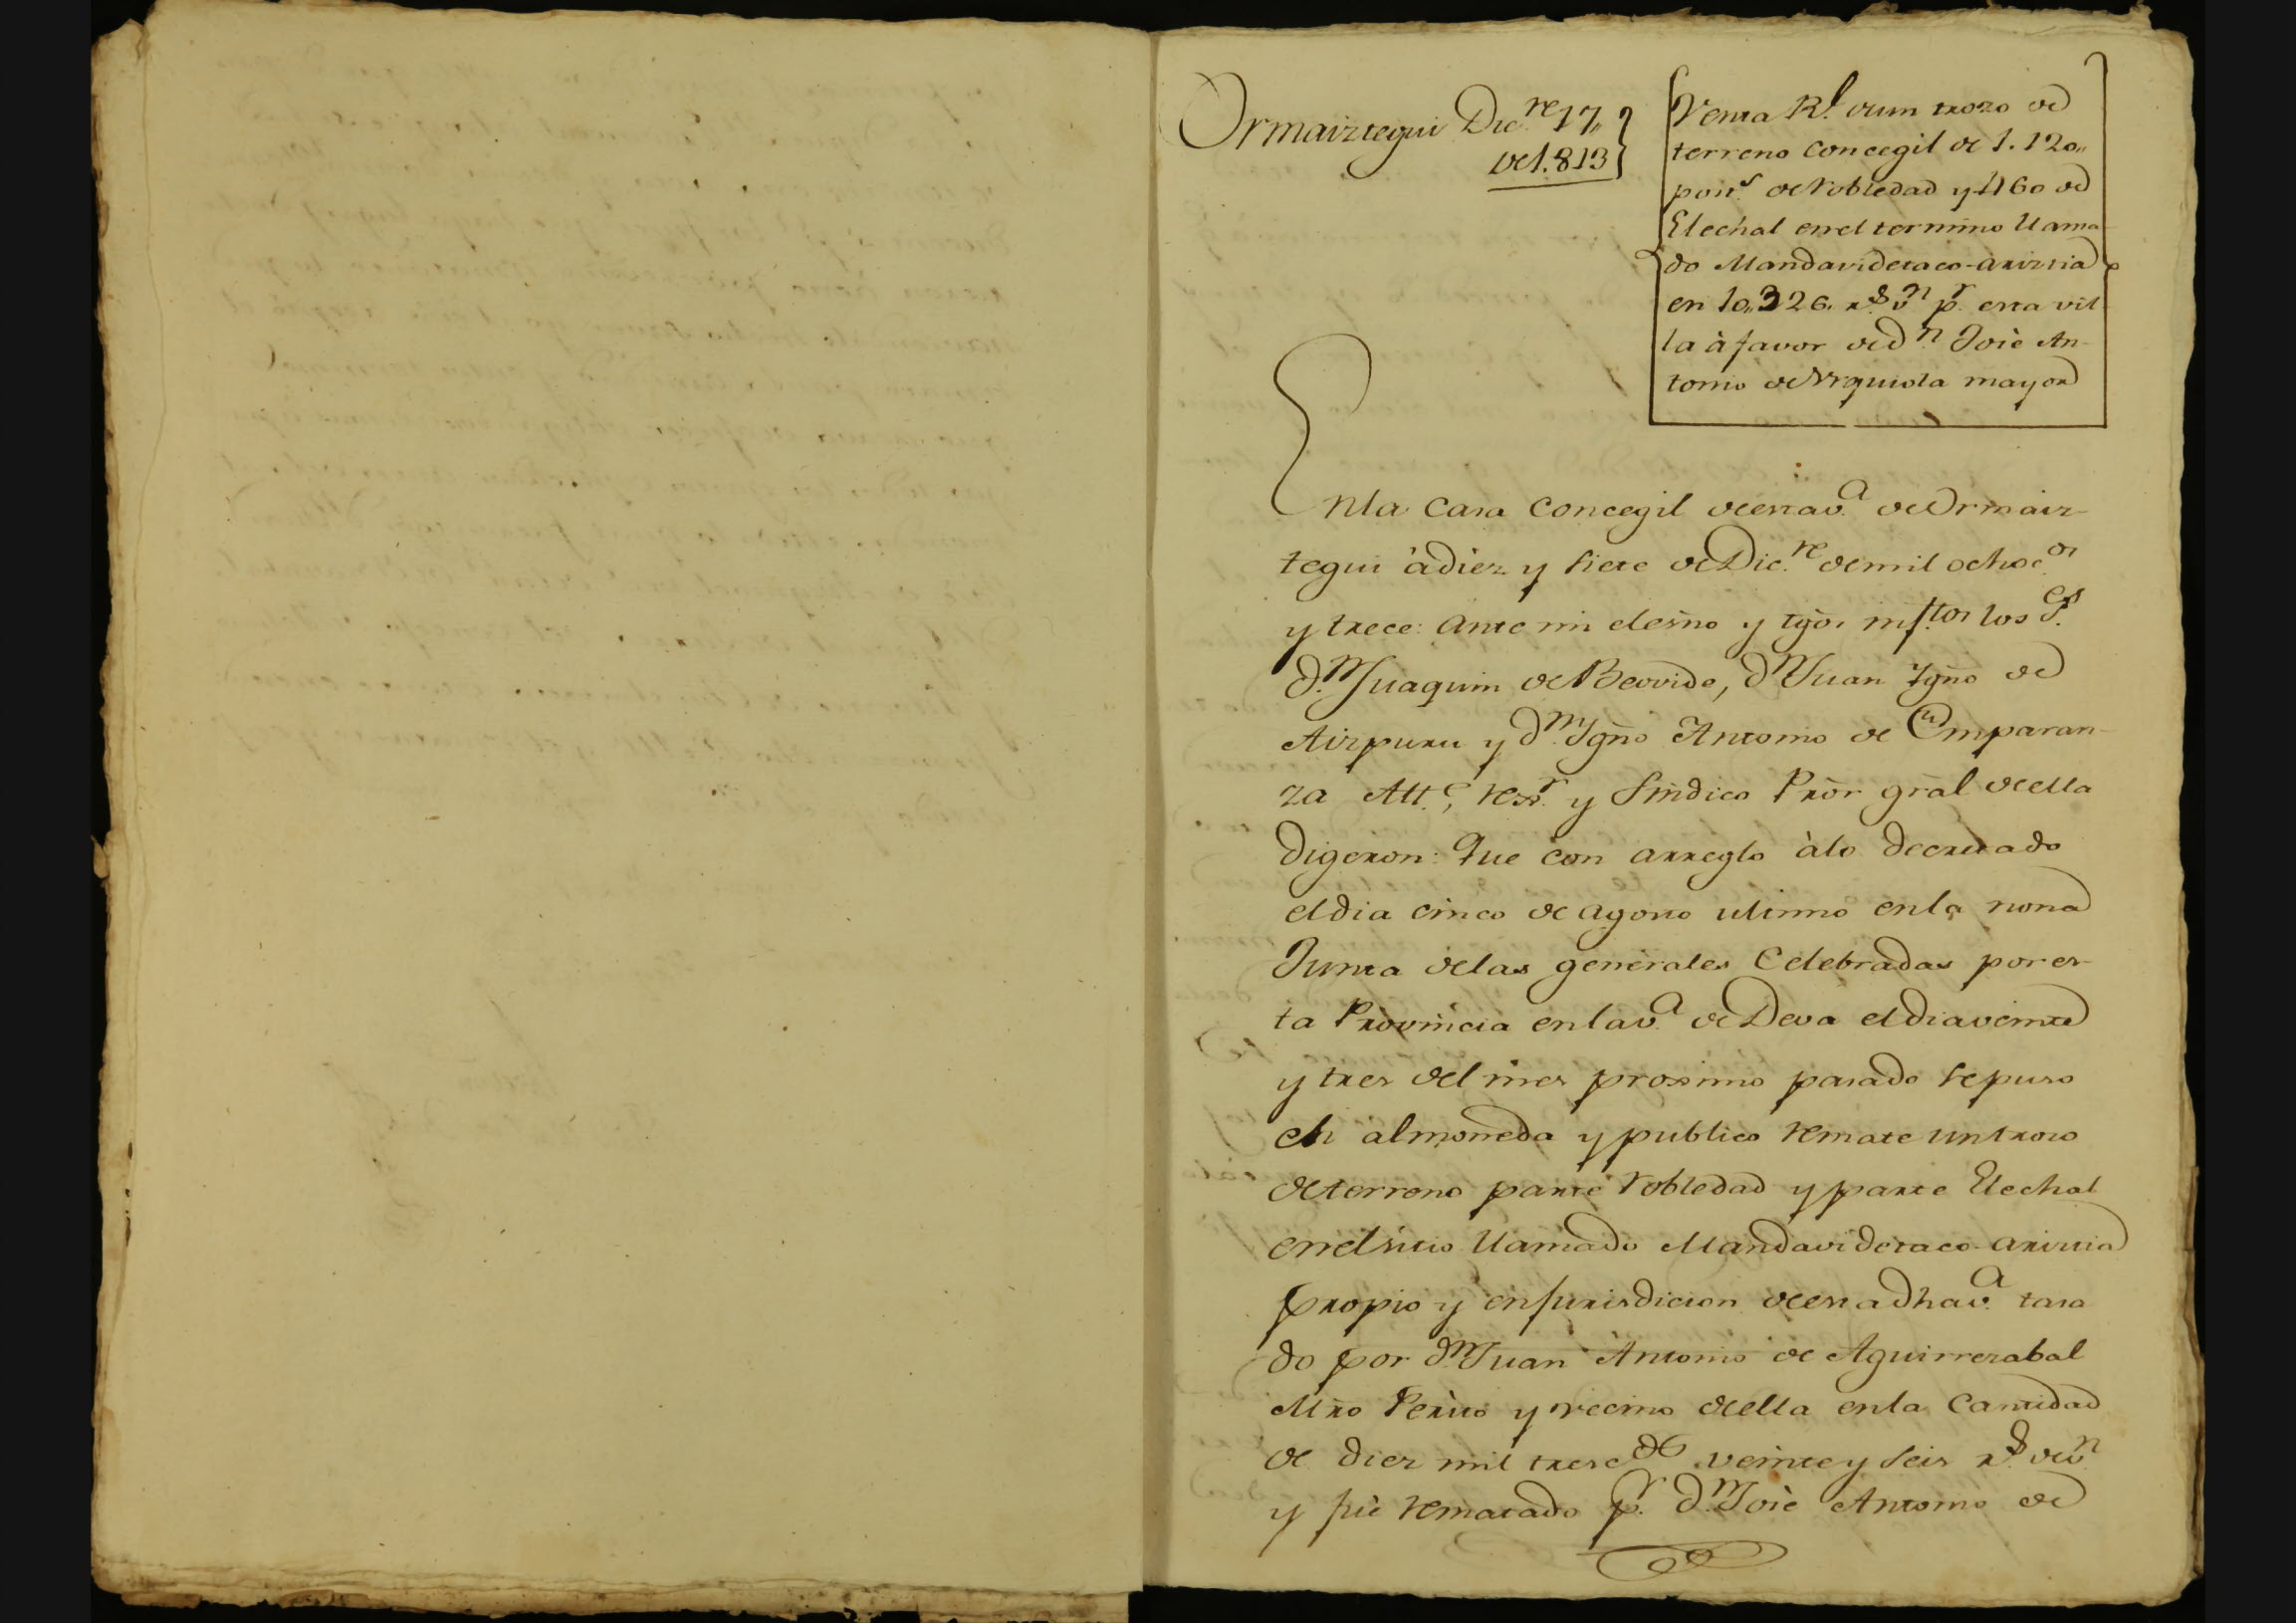 Ormaiztegui Dic.re 17,,
de 1.813
Venta Rl. de un trozo de
terreno concegil de 1.120,,
pos.s de robledad y 460 de
Elechal en el termino llama
do Mandavidetaco-ariztia
en 10,,326. rs. vn pr. esta vil
la à favor de dn. José An
tonio de Urquiola mayor
En la casa concegil de esta v.a de Ormaiz-
tegui à diez y siete de Dic.re de mil ochoc.os
y trece: ante mi el esño y tg̃os inf.tos los S.es
d.n Juaquin de Beovide, d.n Juan Ygño de
Aizpuru y d.n Ygño Antonio de Emparan-
za Alt.e, rex.r y Sindico Prõr grãl de ella
digeron: Que con arreglo à lo decretado
el dia cinco de agosto ultimo en la nona
Junta de las generales Celebradas por es-
ta Provincia en la v.a de Deva el dia veinte
y tres del mes proximo pasado se puso
en almoneda y publico remate un trozo
de terreno parte robledad y parte Elechal
en el sitio llamado Mandavidetaco-ariztia
propio y en jurisdicion de esta dha v.a tasa
do por d.n Juan Antonio de Aguirrezabal
Mrõ Perito y vecino de ella en la Cantidad
de diez mil tresc.os veinte y seis r.s de v.n
y fué rematado p.r d.n José Antonio de